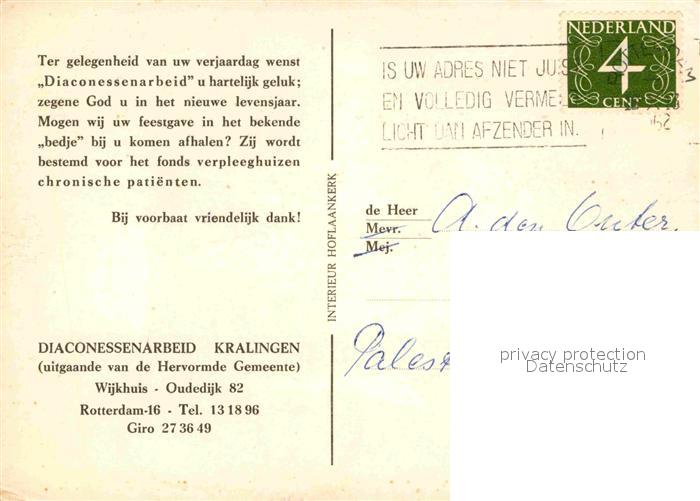 Ter gelegenheid van uw verjaardag wenst
„Diaconessenarbeid" u hartelijk geluk;
zegene God u in het nieuwe levensjaar.
Mogen wij uw feestgave in het bekende
„bedje" bij u komen afhalen? Zij wordt
bestemd voor het fonds verpleeghuizen
chronische patiënten.
Bij voorbaat vriendelijk dank!
DIACONESSENARBEID KRALINGEN
(uitgaande van de Hervormde Gemeente)
Wijkhuis - Oudedijk 82
Rotterdam-16 - Tel. 13 18 96
Giro 27 36 49
INTERIEUR HOFLAANKERK
NEDERLAND
4
CENT
IS UW ADRES NIET JUIS
EN VOLLEDIG VERME
LICHT DAN AFZENDER IN.
de Heer A. den Outer.
Mevr.
Mej.
Pales
privacy protection
Datenschutz